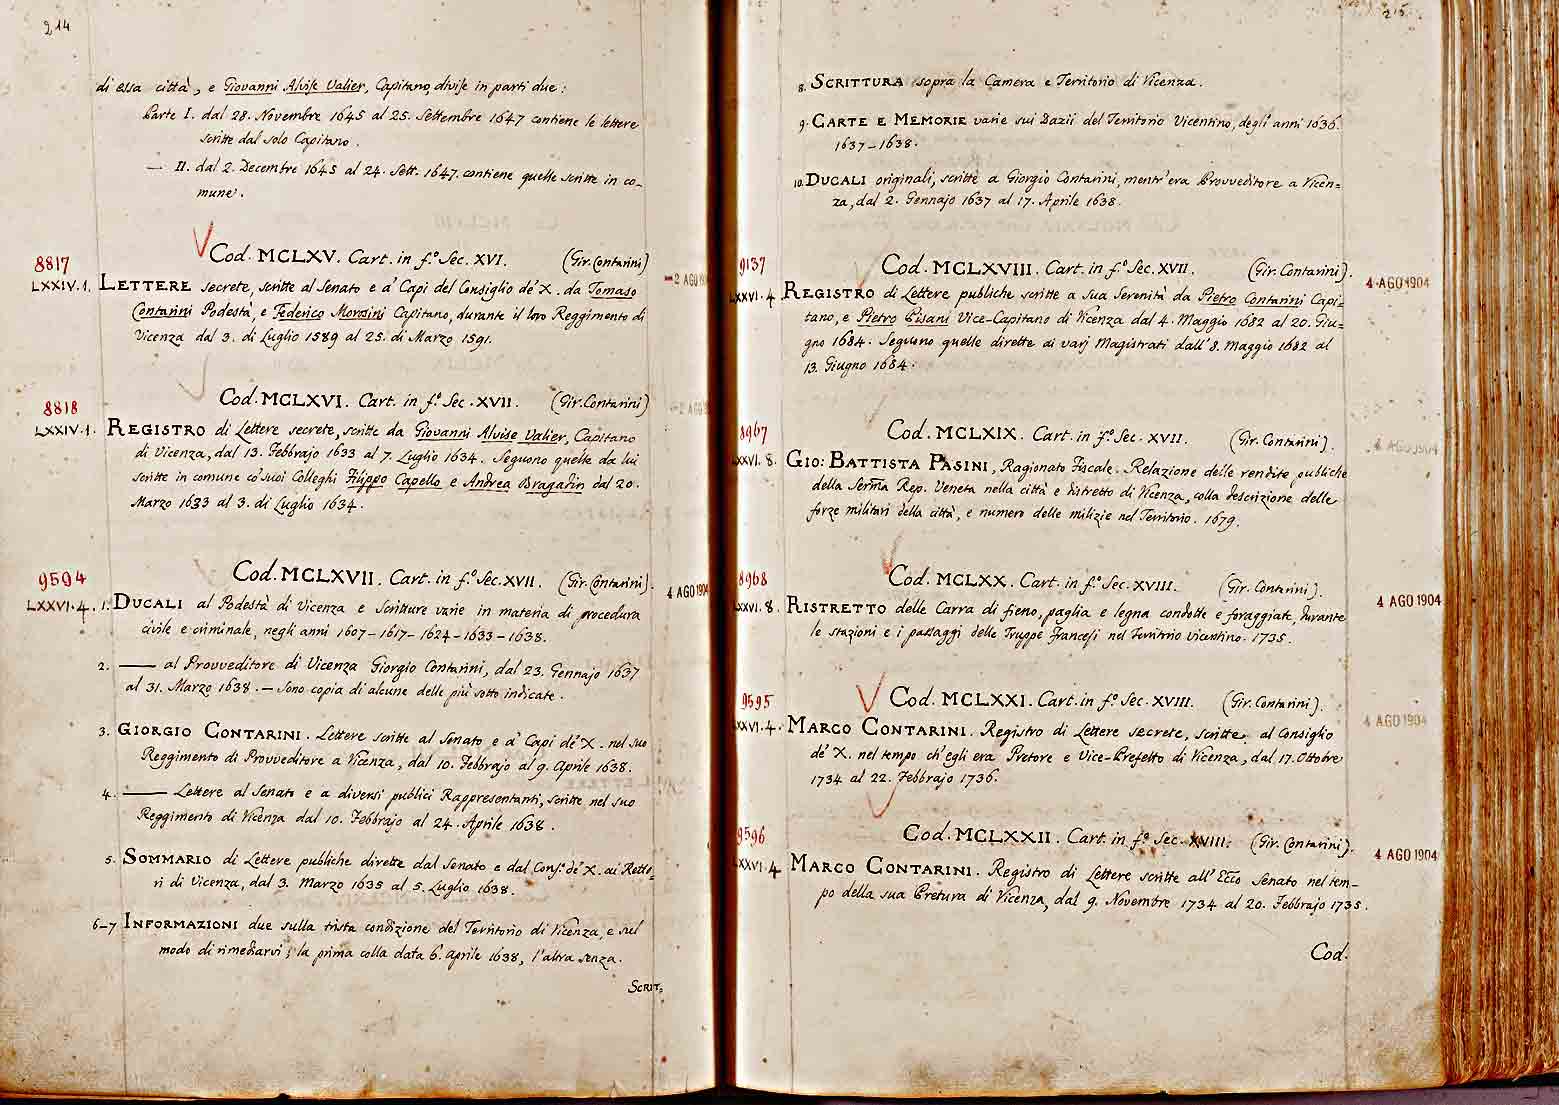 214
di essa città, e Giovanni Alvise Valier, Capitano, divise in parti due:
Parte I. dal 28. Novembre 1645 al 25. Settembre 1647 contiene le lettere
scritte dal solo Capitano.
— II. dal 2. Decembre 1645 al 24. Sett. 1647. contiene quelle scritte in co-
mune.
Cod. MCLXV. Cart. in f.º Sec. XVI. (Gir. Contarini)
8817
LXXIV.1.
2 AGO 190
LETTERE secrete, scritte al Senato e a' Capi del Consiglio de' X. da Tomaso
Contarini Podestà, e Federico Morosini Capitano, durante il loro Reggimento di
Vicenza dal 3. di Luglio 1589 al 25. di Marzo 1591.
Cod. MCLXVI. Cart. in f.º Sec. XVII. (Gir. Contarini)
8818
LXXIV.1.
2 AGO
REGISTRO di Lettere secrete, scritte da Giovanni Alvise Valier, Capitano
di Vicenza, dal 13. Febbrajo 1633 al 7. Luglio 1634. Seguono quelle da lui
scritte in comune co' suoi Colleghi Filippo Capello e Andrea Bragadin dal 20.
Marzo 1633 al 3. di Luglio 1634.
Cod. MCLXVII. Cart. in f.º Sec. XVII. (Gir. Contarini).
9594
LXXVI.4.
4 AGO 1904
1. DUCALI al Podestà di Vicenza e Scritture varie in materia di procedura
civile e criminale, negli anni 1607–1617–1624–1633–1638.
2. —— al Provveditore di Vicenza Giorgio Contarini, dal 23. Gennajo 1637
al 31. Marzo 1638. — Sono copia di alcune delle più sotto indicate.
3. GIORGIO CONTARINI. Lettere scritte al Senato e a' Capi de' X. nel suo
Reggimento di Provveditore a Vicenza, dal 10. Febbrajo al 9. Aprile 1638.
4. —— Lettere al Senato e a diversi publici Rappresentanti, scritte nel suo
Reggimento di Vicenza dal 10. Febbrajo al 24. Aprile 1638.
5. SOMMARIO di Lettere publiche dirette dal Senato e dal Cons.º de' X. ai Retto-
ri di Vicenza, dal 3. Marzo 1635 al 5. Luglio 1638.
6–7 INFORMAZIONI due sulla trista condizione del Territorio di Vicenza, e sul
modo di rimediarvi; la prima colla data 6. Aprile 1638, l'altra senza.
SCRIT=
215
8. SCRITTURA sopra la Camera e Territorio di Vicenza.
9. CARTE E MEMORIE varie sui Dazii del Territorio Vicentino, degli anni 1636.
1637–1638.
10. DUCALI originali, scritte a Giorgio Contarini, mentr'era Provveditore a Vicen=
za, dal 2. Gennajo 1637 al 17. Aprile 1638.
Cod. MCLXVIII. Cart. in f.º Sec. XVII. (Gir. Contarini).
9137
LXXVI.4.
4 AGO 1904
REGISTRO di Lettere publiche scritte a sua Serenità da Pietro Contarini Capi-
tano, e Pietro Pisani Vice-Capitano di Vicenza dal 4. Maggio 1682 al 20. Giu=
gno 1684. Seguono quelle dirette ai varj Magistrati dall'8. Maggio 1682 al
13. Giugno 1684.
Cod. MCLXIX. Cart. in f.º Sec. XVII. (Gir. Contarini).
8967
LXXVI. 8.
4 AGO 1904
GIO: BATTISTA PASINI, Ragionato Fiscale. Relazione delle rendite publiche
della Serma Rep. Veneta nella città e distretto di Vicenza, colla descrizione delle
forze militari della città, e numero delle milizie nel Territorio. 1679.
Cod. MCLXX. Cart. in f.º Sec. XVIII. (Gir. Contarini).
8968
LXXVI. 8.
4 AGO 1904
RISTRETTO delle Carra di fieno, paglia e legna condotte e foraggiate, durante
le stazioni e i passaggi delle Truppe Francesi nel Territorio vicentino. 1735.
Cod. MCLXXI. Cart. in f.º Sec. XVIII. (Gir. Contarini).
9595
LXXVI.4.
4 AGO 1904
MARCO CONTARINI. Registro di Lettere secrete, scritte al Consiglio
de' X. nel tempo ch'egli era Pretore e Vice-Prefetto di Vicenza, dal 17. Ottobre
1734 al 22. Febbrajo 1736.
Cod. MCLXXII. Cart. in f.º Sec. XVIII. (Gir. Contarini).
9596
LXXVI.4
4 AGO 1904
MARCO CONTARINI. Registro di Lettere scritte all'Ecco Senato nel tem-
po della sua Pretura di Vicenza, dal 9. Novembre 1734 al 20. Febbrajo 1735.
Cod.